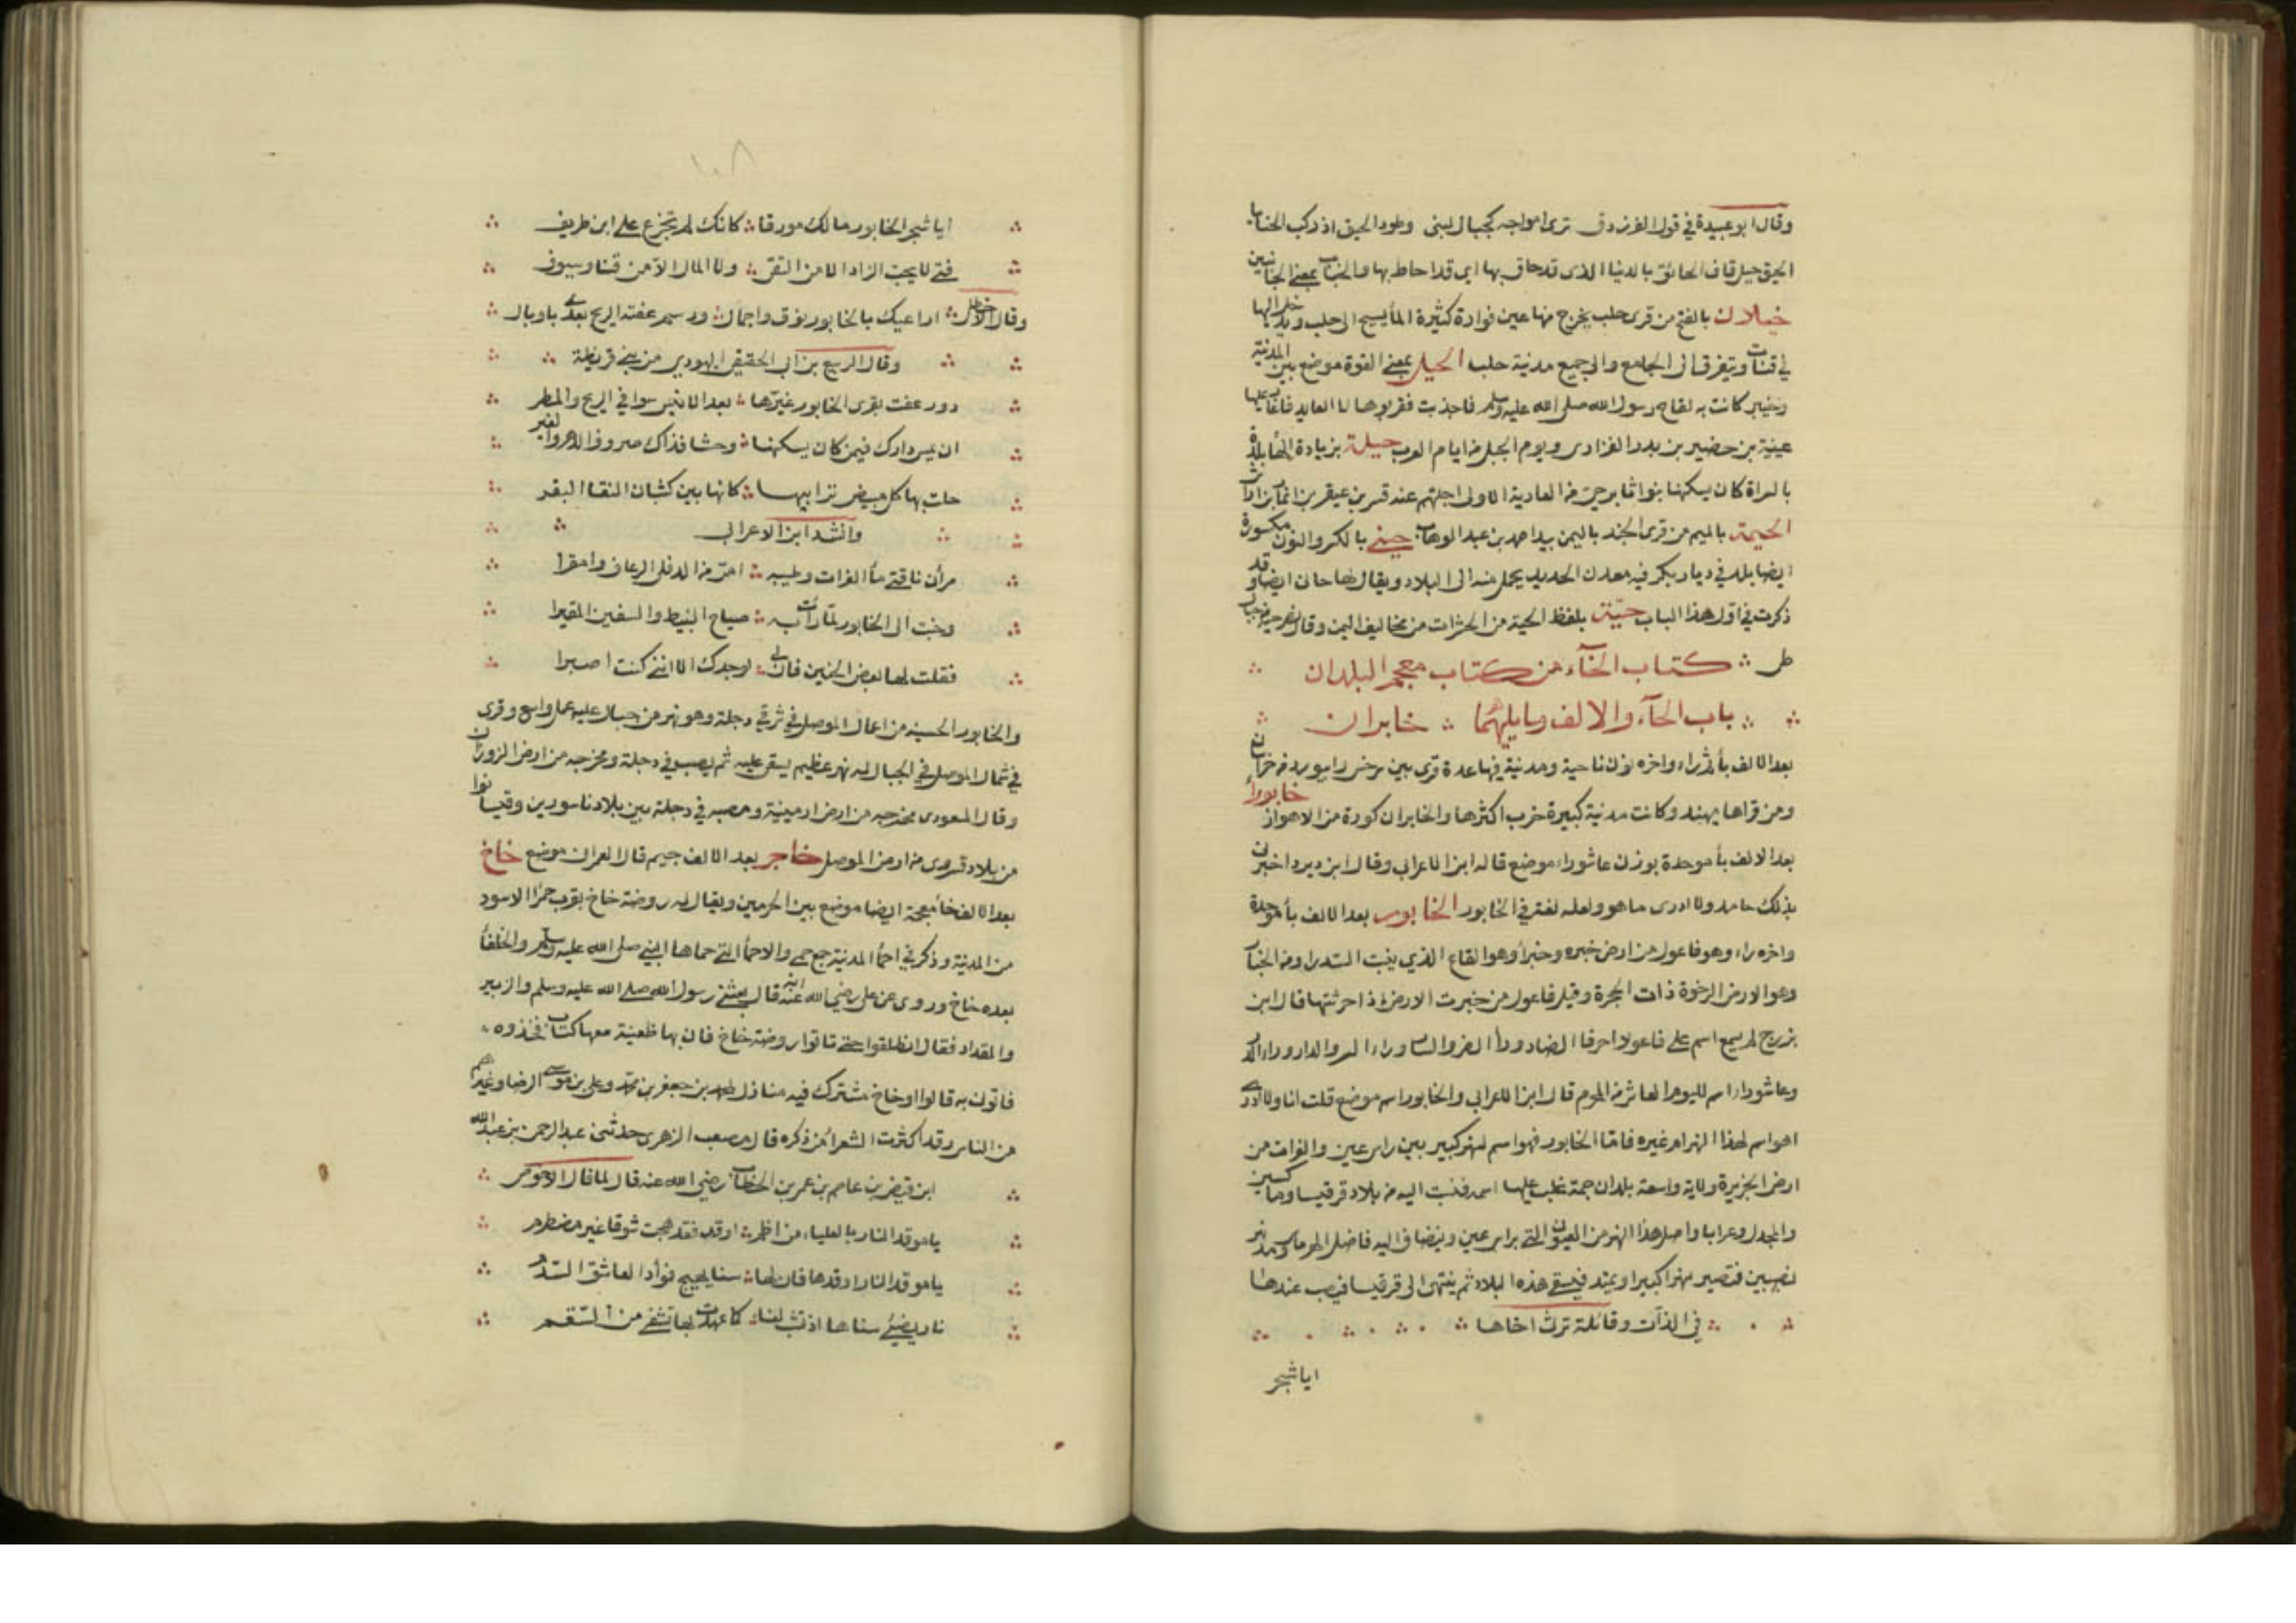 وقال ابو عبيدة في قول الفرزدق ترى امواجه كجبال لبنى وطود الحيق اذ ركب الجنابا
الحيق جبل قاف الحائق بالدنيا الذى قد حاق بها اى قد احاط بها والجناب بمعنى الجانبين
خيلان بالفتح من قرى حلب يخرج منها عين فوارة كثيرة الماء يسيح الى حلب ويدخل اليها
في قنات ويتفرق الى الجامع والى جميع مدنية حلب الحيل بمعنى القوة موضع بين المدنية
وخيبر كانت به لقاح رسول الله صلى الله عليه وسلم فاجذبت فقربوها الى الغابة فاغار عليها
عينية بن حضير بن بدر الفزارى ويوم الحيل من ايام العرب حيلة بزيادة الهاء بلدة
بالسراة كان يسكنها بنو ثابر حى من العادية الاولى اجلتهم عنه قسر بن عبقر بن انمار بن اراش
الحيمة بالميم من قرى الجند باليمن بيد احمد بن عبد الوهاب حينى بالكسر والنون مكسورة
ايضا بلد في ديار بكر فيه معدن الحديد يحمل منه الى البلاد ويقال لها حانى ايضا وقد
ذكرت في اول هذا الباب حيّة بلفظ الحية من الحشرات من مخاليف اليمن وقال نصر حية من جبال
طى ؞ كتاب الخآء من كتاب معجم البلدان
باب الخآء والالف وما يليهما ؞ خابران
بعد الالف باء ثم راء واخره نون ناحية ومدنية فيها عدة قرى بين سرخس وابيورد من خراسان
ومن قراها ميهنه وكانت مدنية كبيرة خرب اكثرها والخابران كورة من الاهواز خابوراء
بعد الالف باء موحدة بوزن عاشوراء موضع قاله ابن الاعرابى وقال ابن دريد اخبرنى
بذلك حامد ولا ادرى ما هو ولعله لغة في الخابور الخابور بعد الالف باء موحدة
واخره راء وهو فاعول من ارض خبره وخبراء وهو القاع الذي ينبت السدر او من الخبار
وهو الارض الرخوة ذات الحجرة وقيل فاعول من خبرت الارض اذا حرثتها قال ابن
بزرج لم يسمع اسم على فاعولاء احرفا الضاروراء الضر والساروراء السر والداروراء الدل
وعاشوراء اسم لليوم العاشر من المحرم قال ابن الاعرابى والخابوراء اسم موضع قلت انا ولا ادرى
اهو اسم لهذا النهر ام غيره فامّا الخابور فهو اسم لنهر كبير بين راس عين والفرات من
ارض الجزيرة ولاية واسعة بلدان جمة غلب عليها اسمه فنسبت اليه من بلاد قرقيسا وماكسين
والمجدل وعرابا واصل هذا النهر من العيون التي براس عين وينضاف اليه فاضل الهرماس ومد نهر
نصيبين فتصير نهرا كبيرا ويمتد فيسقى هذه البلاد ثم ينتهى الى قرقيسا فيصب عندها
في الفرات وقائلة ترث اخاها
ايا شجر
١٠٨
ايا شجر الخابور مالك مورقا ؞ كانك لم تجزع على ابن طريف
فتى لا يحب الزاد الا من التقى ؞ ولا المال الا من قنا وسيوف
وقال الاخطل ؞ اراعيك بالخابور نوق واجمال ؞ ورسم عفته الريح بعدى باوبال
وقال الربيع بن ابى الحقيق اليهودي من بنى قريظة
دور عفت بقرى الخابور غيّرها ؞ بعد الانيس سوافي الريح والمطر
ان يمس دارك فيمن كان يسكنها ؞ وحشا فذاك صروف الدهر والغير
حلت بها كل مبيض ترابيها ؞ كانها بين كثبان النقا البقر
وانشد ابن الاعرابى
رأت ناقتى ماء الفرات وطيبه ؞ امرّ من الدفلى الزعاف وامقرا
وحنت الى الخابور لمّا رأت به ؞ صياح النبيط والسفين المقيرا
فقلت لها بعض الحنين فان لى ؞ لوجدك الا اننى كنت اصبرا
والخابور الحسنية من اعمال الموصل في شرقى دجلة وهو نهر من جبال عليه عمل واسع وقرى
في شمال الموصل في الجبال له نهر عظيم يسقى عليه ثم يصب في دجلة ومخرجه من ارض الزوزان
وقال المسعودى مخرجه من ارض ارمينية ومصبه في دجلة بين بلاد باسورين وقيسابوا
من بلاد قردى من ارض الموصل خاجر بعد الالف جيم قال العمرانى موضع خاخ
بعد الالف خاء معجمة ايضا موضع بين الحرمين ويقال له روضة خاخ بقرب حمرا الاسود
من المدنية وذكر في احماء المدنية جمع حمى والاحماء التى حماها النبى صلى الله عليه وسلم والخلفاء
بعده خاخ وروى عن على رضى الله عنه انه قال بعثنى رسول الله صلى الله عليه وسلم والزبير
والمقداد فقال انطلقوا حتى تاتوا روضة خاخ فان بها ظعينة معها كتاب فخذوه
فاتون به قالوا وخاخ مشترك فيه منازل لمحمد بن جعفر بن محمد وعلى بن موسى الرضا وغيرهم
من الناس وقد اكثرت الشعراء من ذكره قال مصعب الزهرى حدثنى عبد الرحمن بن عبد الله
ابن قيض بن عاصم بن عمر بن الخطاب رضى الله عنه قال لما قال الاحوص
يا موقد النار بالعلياء من اضم ؞ اوقد فقد هجت شوقا غير مضطرم
يا موقد النار اوقدها فان لها ؞ سنا يهيج فؤاد العاشق السدم
نار يضئ سناها اذ تشب لنا ؞ كا عهدت بها تشفى من السقم